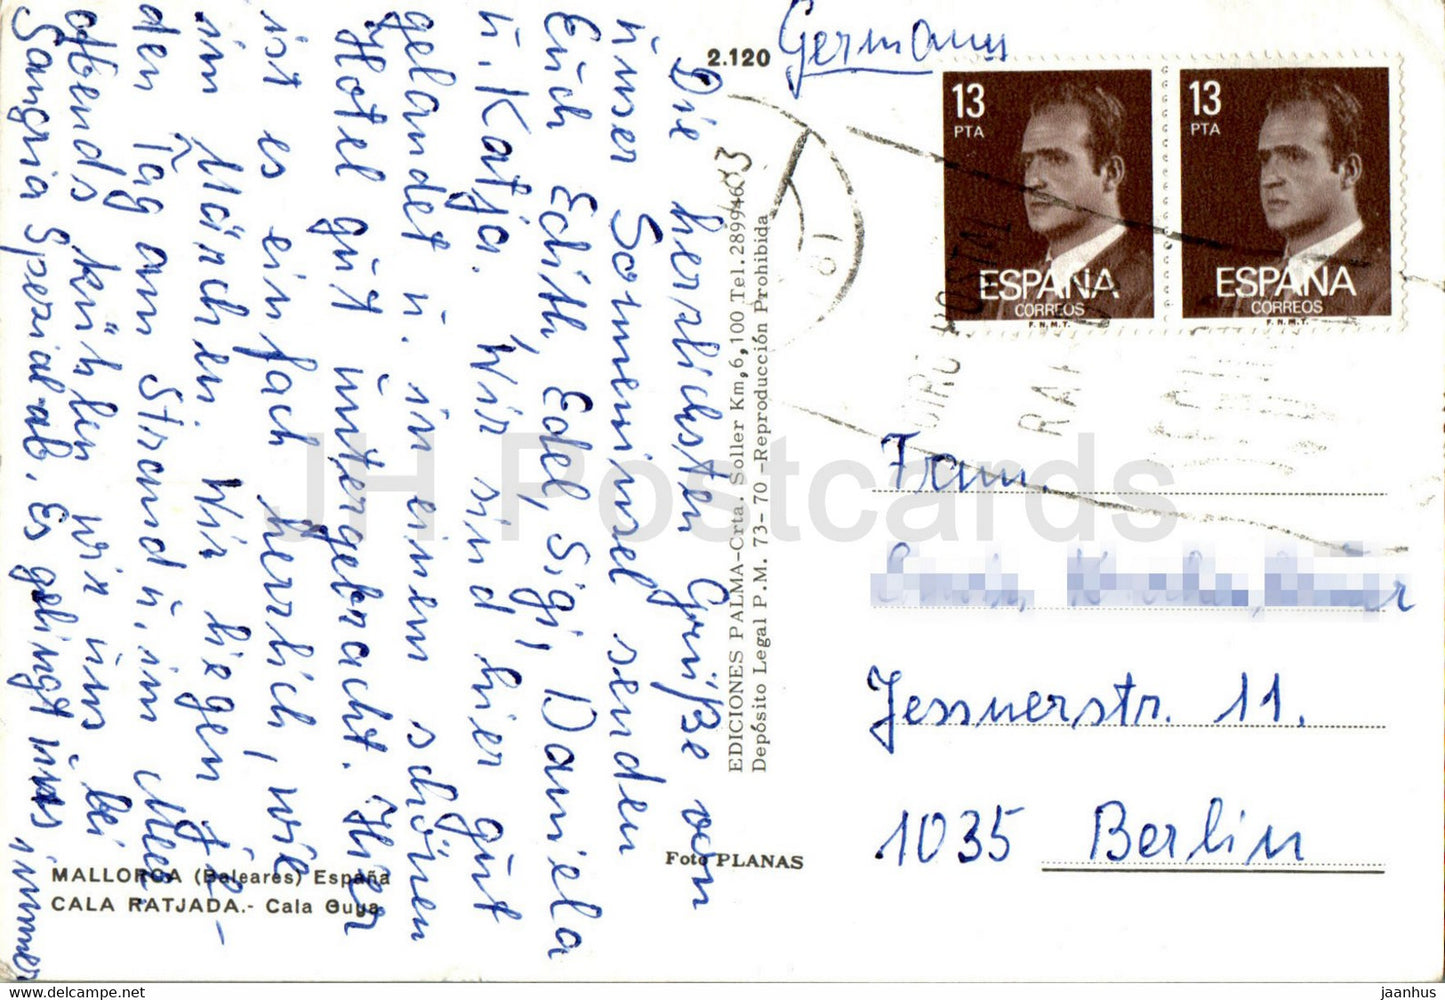 Germany
2.120
13
PTA
ESPAÑA
CORREOS
F.N.M.T.
13
PTA
ESPAÑA
CORREOS
F.N.M.T.
Die herzlichsten Grüße von
unser Sonneninsel senden
Euch Edith, Edel, Sigi, Daniela
u. Katja. Wir sind hier gut
gelandet u. in einem schönen
Hotel gut untergebracht. Hier
ist es einfach herrlich, wie
im Märchen. Wir liegen je-
den Tag am Strand u. im Meer
abends kühlen wir uns bei
Sangria Spezial ab. Es gelingt uns immer
EDICIONES PALMA-Crta. Soller Km, 6,100 Tel. 289946
Depósito Legal P.M. 73-70 -Reproducción Prohibida
Foto PLANAS
MALLORCA (Baleares) España
CALA RATJADA.- Cala Guya
Jessnerstr. 11.
1035 Berlin
JH Postcards
www.delcampe.net
jaanhus